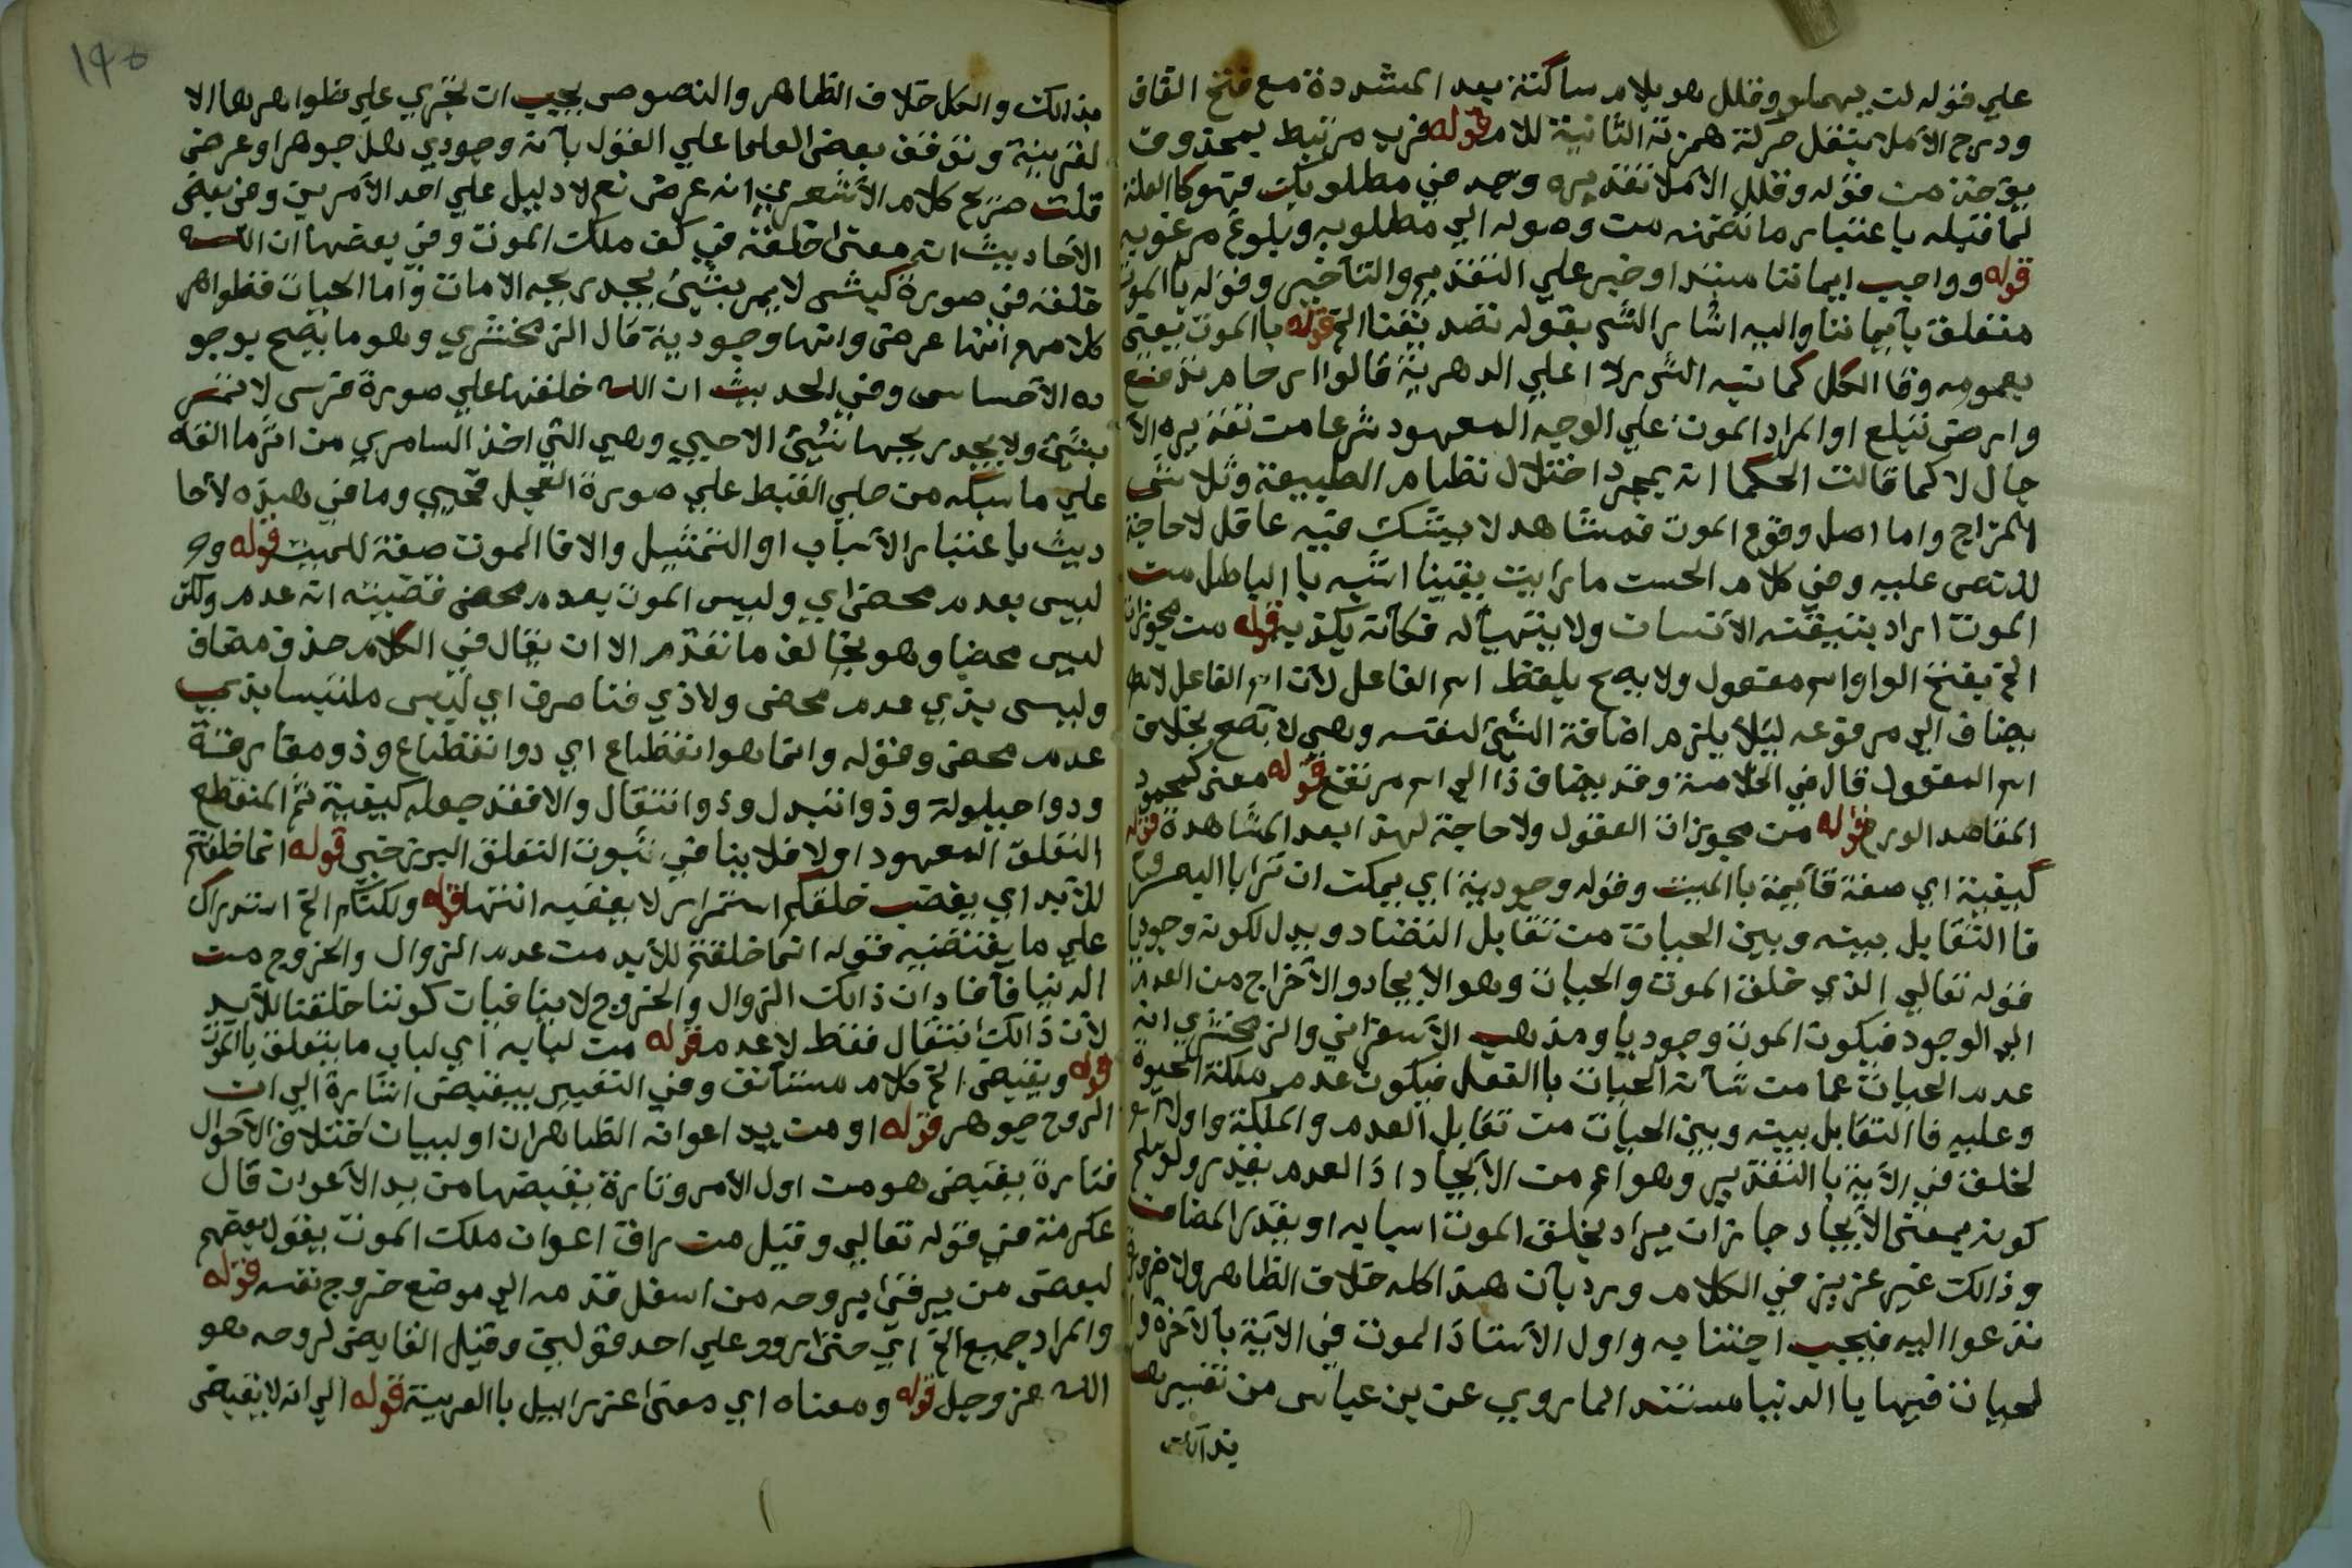 علي قوله لن يهملو وقلل هو بلام ساكنة بعد المشددة مع فتح القاف
ودرج الاملا بنقل حركة همزته الثانية للام قوله فرب مرتبط بمحذوف
يؤخذ من قوله وقلل الاملا تقديره وجد في مطلوبك فهو كالعلة
لما قبله باعتبار ما تضمنه من وصوله الي مطلوبه وبلوغ مرغوبه
قوله وواجب ايماننا مبتدا وخبر علي التقديم والتأخير وقوله باالموت
متعلق بأيماننا واليه اشار الش بقوله تصديقنا الخ قوله باالموت يعني
بعمومه وفنا الكل كما نبه الش ردا علي الدهرية قالوا ارحام تدفع
وارض تبلع او المراد الموت علي الوجه المعهود شرعا من تقديره الا
جال لا كما قالت الحكما انه بمجرد اختلال نظام الطبيعة وتلاشي
المزاج واما اصل وقوع الموت فمشاهد لا يشك فيه عاقل لا حاجة
للنص عليه وفي كلام الحسن ما رايت يقينا اشبه باالباطل من
الموت اراد يتيقنه الأنسان ولا يتهيأ له فكأنه يكذب به قوله من مجوزات
الخ بفتح الواو اسم مفعول ولا يصح بلفظ اسم الفاعل لأن اسم الفاعل لا
يضاف الي مرفوعه ليلا يلزم اضافة الشئ لنفسه وهي لا تصح بخلاف
اسم المفعول قال في الخلاصة وقد يضاف ذا الي اسم مرتفع قوله معني كمحمود
المقاصد الورع قوله من مجوزات العقول ولا حاجة لهذا بعد المشاهدة قوله
كيفية اي صفة قايمة باالميت وقوله وجودية اي يمكن ان ترا باالبصر
فا التقابل بينه وبين الحيات من تقابل التضاد ويدل لكونه وجوديا
قوله تعالي الذي خلق الموت والحيات وهو الايجاد والأخراج من العدم
الي الوجود فيكون الموت وجوديا ومذهب الأسفراني والزمخشري انه
عدم الحيات عما من شأنه الحيات باالفعل فيكون عدم ملكة الحيوة
وعليه فا التقابل بينه وبين الحيات من تقابل العدم والملكة واول
لخلق في الآية باالتقدير وهو اعم من الأيجاد اذ العدم يقدر ولو سلم
كونه بمعني الأيجاد جاز ان يراد بخلق الموت اسبابه او يقدر المضاف
وذالك غير عزيز في الكلام ورد بأن هذا كله خلاف الظاهر ولا ضرورة
تدعوا اليه فيجب اجتنابه واول الأستاذ الموت في الآية بالآخرة وا
لحيات فيها باالدنيا مستندا لما روي عن بن عباس من تفسيرها
بذالك
١٩٥
بذالك والكل خلاف الظاهر والنصوص يجيب ان تجري علي ظواهرها الا
لقرينة وتوقف بعض العلما علي القول بأنه وجودي هل جوهر او عرض
قلت صريح كلام الأشعري انه عرض نع لا دليل علي احد الأمرين وفي بعض
الأحاديث انه معني خلقه في كف ملك الموت وفي بعضها ان الله
خلقه في صورة كبش لا يمر بشئ يجد ريحه الا مات وأما الحيات فظواهر
كلامهم انها عرض وانها وجودية قال الزمخشري وهو ما يصح بوجو
ده الأحساس وفي الحديث ان الله خلقها علي صورة فرس لا تمر
بشئ ولا يجد ريحها شئ الا حيي وهي التي اخذ السامري من اثرما القاه
علي ما سبكه من حلي القبط علي صورة العجل فحيي وما في هذه الأحا
ديث باعتبار الأسباب او التمثيل والا فا الموت صفة للميت قوله و
ليس بعدم محض اي وليس الموت بعدم محض فقضيته انه عدم ولكن
ليس محضا وهو يخالف ما تقدم الا ان يقال في الكلام حذف مضاف
وليس بذي عدم محض ولا ذي فنا صرف اي ليس ملتبسا بذي
عدم محض وقوله وانما هو انقطاع اي ذوا انقطاع وذو مفارقة
وذوا حيلولة وذوا تبدل وذوا انتقال والا فقد جعله كيفية ثم المنقطع
التعلق المعهود اولا فلا ينافي ثبوت التعلق البرزخي قوله انما خلقتم
للأبد اي يقصد خلقكم استمرار لا يعقبه انتها قوله ولكنكم الخ استدراك
علي ما يقتضيه قوله انما خلقتم للأبد من عدم الزوال والخروج من
الدنيا فأفاد ان ذالك الزوال والخروج لا ينافيان كوننا خلقنا للأبد
لأن ذالك انتقال فقط لا عدم قوله من لبابه اي لباب ما يتعلق باالموت
قوله ويقبض الخ كلام مستأنف وفي التعبير بيقبض اشارة الي ان
الروح جوهر قوله او من يد اعوانه الظاهر ان او لبيان اختلاف الأحوال
فتارة يقبض هو من اول الأمر وتارة يقبضها من يد الأعوان قال
عكرمة في قوله تعالي وقيل من راق اعوان ملك الموت يقول بعضهم
لبعض من يرقي بروحه من اسفل قدمه الي موضع خروج نفسه قوله
والمراد جميع الخ اي حتي روو علي احد قولين وقيل القابض لروحه هو
الله عز وجل قوله ومعناه اي معني عزراييل باالعربية قوله الي انه لا يقبض